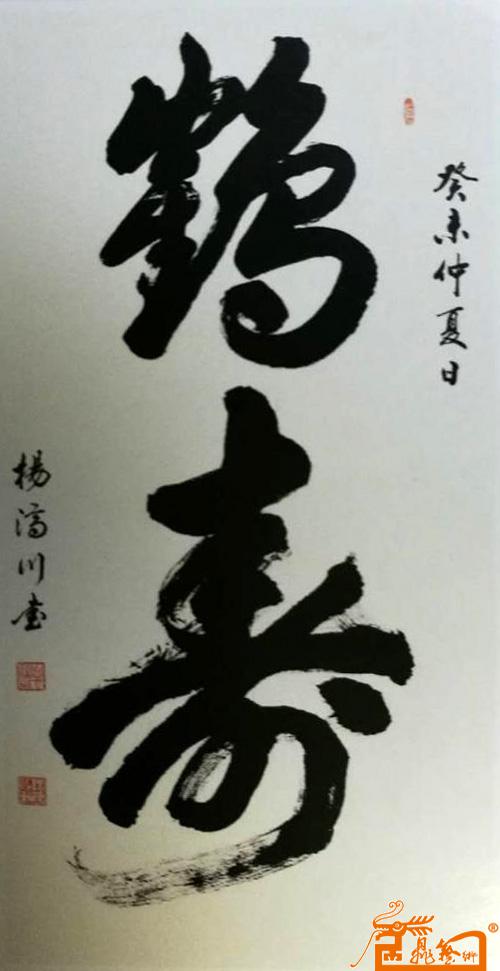 鹤寿
癸未仲夏日
杨济川书